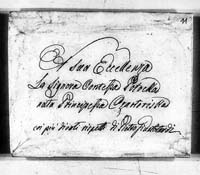 11
A Sua Eccellenza
La Signora Contessa Potocka
nata Principessa Czartoriska
coi più divoti rispetti di